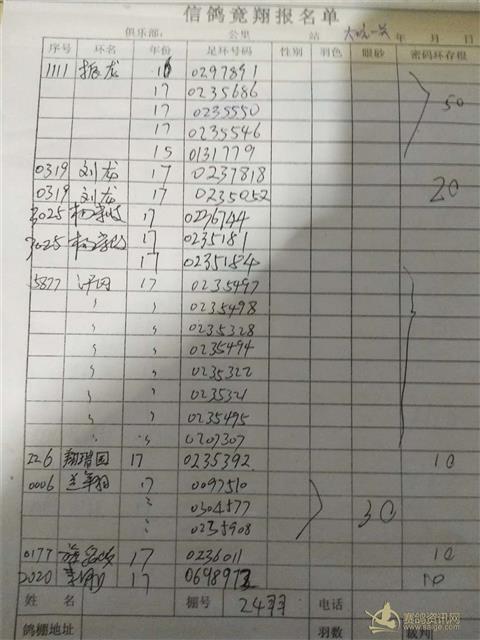 信鸽竞翔报名单
俱乐部: 公里 站 年 月 日
序号 环名 年份 足环号码 性别 羽色 眼砂 密码环存根
1111 振龙 16 0297891
17 0235686
17 0235550 50
17 0235546
15 0131779
0319 刘龙 17 0237818
0319 刘龙 17 0235052 20
3025 17 0226744
3025 17 0235181
17 0235184
5877 17 0235497
〃 〃 0235498
〃 〃 0235328
〃 〃 0235494
〃 〃 0235322
〃 〃 0235321
〃 〃 0235495
〃 〃 0207307
226 翔瑞园 17 0235392 10
0006 兰翔 17 0097510
〃 0304577 30
〃 0235908
0177 17 0236011 10
2020 17 0698973 10
姓 名 棚号 24羽 电话
鸽棚地址 羽数 裁判
赛鸽资讯网